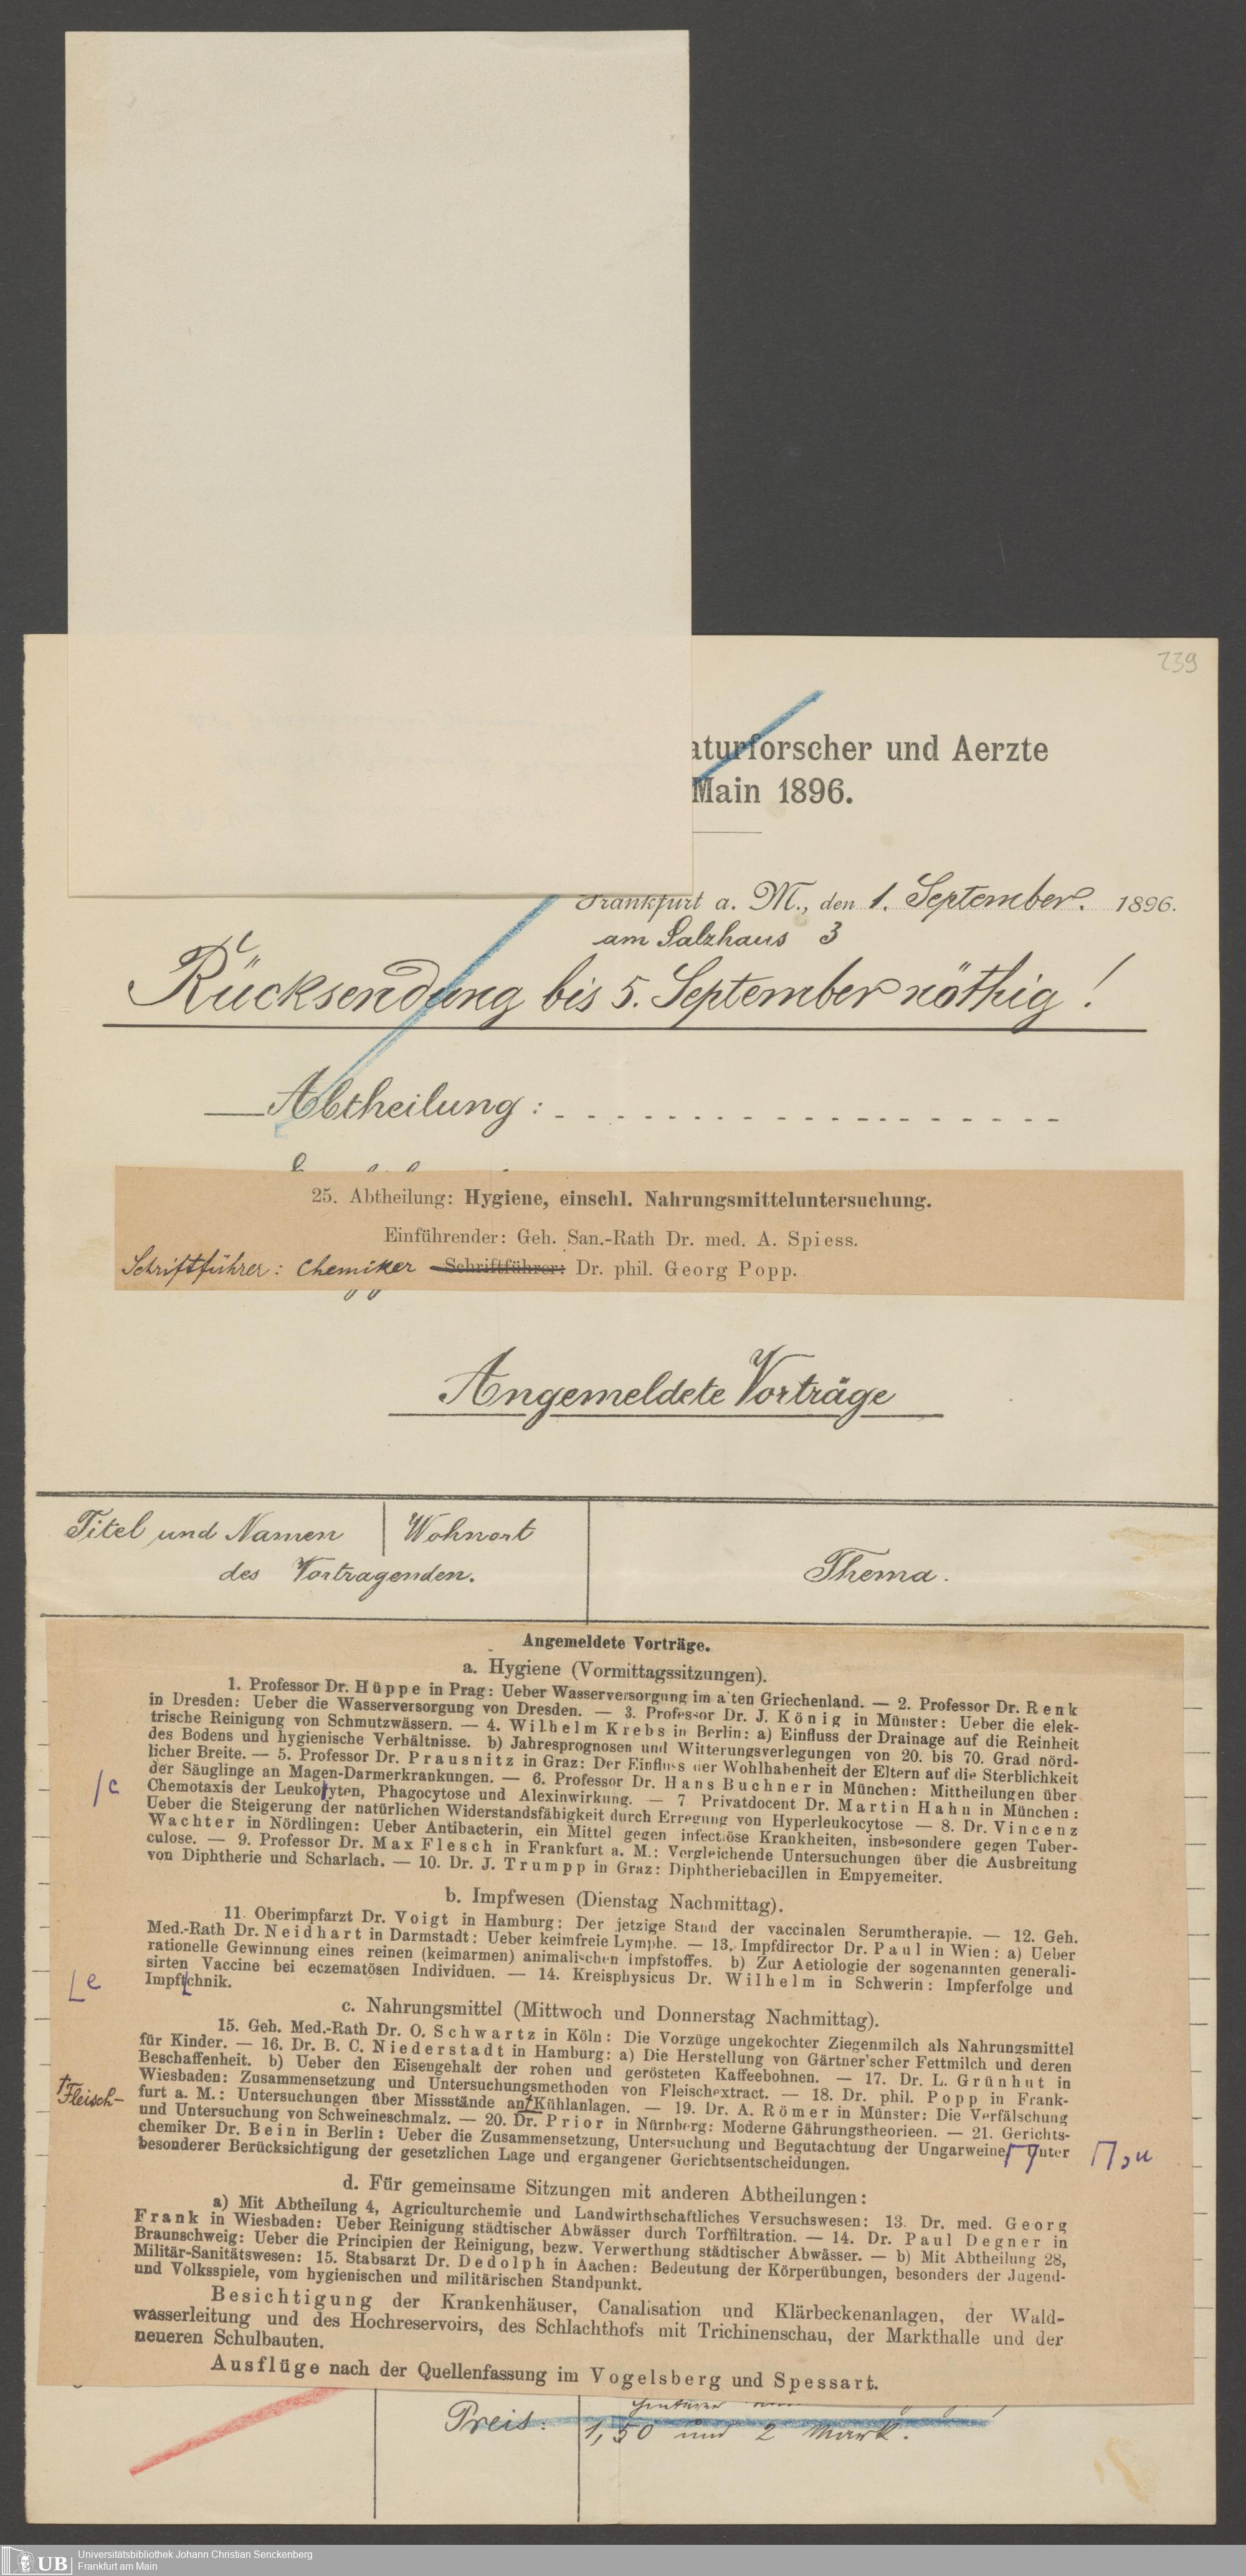 239
aturforscher und Aerzte
Main 1896.
Frankfurt a. M., den 1. September. 1896.
am Salzhaus 3
Rücksendung bis 5. September nöthig!
Abtheilung:
25. Abtheilung: Hygiene, einschl. Nahrungsmitteluntersuchung.
Einführender: Geh. San.-Rath Dr. med. A. Spiess.
Schriftführer: Chemiker Schriftführer: Dr. phil. Georg Popp.
Angemeldete Vorträge
Titel und Namen Wohnort
des Vortragenden.
Thema.
Angemeldete Vorträge.
a. Hygiene (Vormittagssitzungen).
1. Professor Dr. Hüppe in Prag: Ueber Wasserversorgung im a'ten Griechenland. — 2. Professor Dr. Renk
in Dresden: Ueber die Wasserversorgung von Dresden. — 3. Professor Dr. J. König in Münster: Ueber die elek-
trische Reinigung von Schmutzwässern. — 4. Wilhelm Krebs in Berlin: a) Einfluss der Drainage auf die Reinheit
des Bodens und hygienische Verhältnisse. b) Jahresprognosen und Witterungsverlegungen von 20. bis 70. Grad nörd-
licher Breite. — 5. Professor Dr. Prausnitz in Graz: Der Einfluss der Wohlhabenheit der Eltern auf die Sterblichkeit
der Säuglinge an Magen-Darmerkrankungen. — 6. Professor Dr. Hans Buchner in München: Mittheilungen über
/c Chemotaxis der Leuko/yten, Phagocytose und Alexinwirkung. — 7 Privatdocent Dr. Martin Hahn in München:
Ueber die Steigerung der natürlichen Widerstandsfähigkeit durch Erregung von Hyperleukocytose — 8. Dr. Vincenz
Wachter in Nördlingen: Ueber Antibacterin, ein Mittel gegen infectiöse Krankheiten, insbesondere gegen Tuber-
culose. — 9. Professor Dr. Max Flesch in Frankfurt a. M.: Vergleichende Untersuchungen über die Ausbreitung
von Diphtherie und Scharlach. — 10. Dr. J. Trumpp in Graz: Diphtheriebacillen in Empyemeiter.
b. Impfwesen (Dienstag Nachmittag).
11. Oberimpfarzt Dr. Voigt in Hamburg: Der jetzige Stand der vaccinalen Serumtherapie. — 12. Geh.
Med.-Rath Dr. Neidhart in Darmstadt: Ueber keimfreie Lymphe. — 13. Impfdirector Dr. Paul in Wien: a) Ueber
rationelle Gewinnung eines reinen (keimarmen) animalischen Impfstoffes. b) Zur Aetiologie der sogenannten generali-
sirten Vaccine bei eczematösen Individuen. — 14. Kreisphysicus Dr. Wilhelm in Schwerin: Impferfolge und
⌊e Impft⌊chnik.
c. Nahrungsmittel (Mittwoch und Donnerstag Nachmittag).
15. Geh. Med.-Rath Dr. O. Schwartz in Köln: Die Vorzüge ungekochter Ziegenmilch als Nahrungsmittel
für Kinder. — 16. Dr. B. C. Niederstadt in Hamburg: a) Die Herstellung von Gärtner'scher Fettmilch und deren
Beschaffenheit. b) Ueber den Eisengehalt der rohen und gerösteten Kaffeebohnen. — 17. Dr. L. Grünhut in
Wiesbaden: Zusammensetzung und Untersuchungsmethoden von Fleischextract. — 18. Dr. phil. Popp in Frank-
†Fleisch- furt a. M.: Untersuchungen über Missstände an†Kühlanlagen. — 19. Dr. A. Römer in Münster: Die Verfälschung
und Untersuchung von Schweineschmalz. — 20. Dr. Prior in Nürnberg: Moderne Gährungstheorieen. — 21. Gerichts-
chemiker Dr. Bein in Berlin: Ueber die Zusammensetzung, Untersuchung und Begutachtung der Ungarweine unter ,u
besonderer Berücksichtigung der gesetzlichen Lage und ergangener Gerichtsentscheidungen.
d. Für gemeinsame Sitzungen mit anderen Abtheilungen:
a) Mit Abtheilung 4, Agriculturchemie und Landwirthschaftliches Versuchswesen: 13. Dr. med. Georg
Frank in Wiesbaden: Ueber Reinigung städtischer Abwässer durch Torffiltration. — 14. Dr. Paul Degner in
Braunschweig: Ueber die Principien der Reinigung, bezw. Verwerthung städtischer Abwässer. — b) Mit Abtheilung 28,
Militär-Sanitätswesen: 15. Stabsarzt Dr. Dedolph in Aachen: Bedeutung der Körperübungen, besonders der Jugend-
und Volksspiele, vom hygienischen und militärischen Standpunkt.
Besichtigung der Krankenhäuser, Canalisation und Klärbeckenanlagen, der Wald-
wasserleitung und des Hochreservoirs, des Schlachthofs mit Trichinenschau, der Markthalle und der
neueren Schulbauten.
Ausflüge nach der Quellenfassung im Vogelsberg und Spessart.
Preis: 1,50 und 2 Mark.
UB
Universitätsbibliothek Johann Christian Senckenberg
Frankfurt am Main